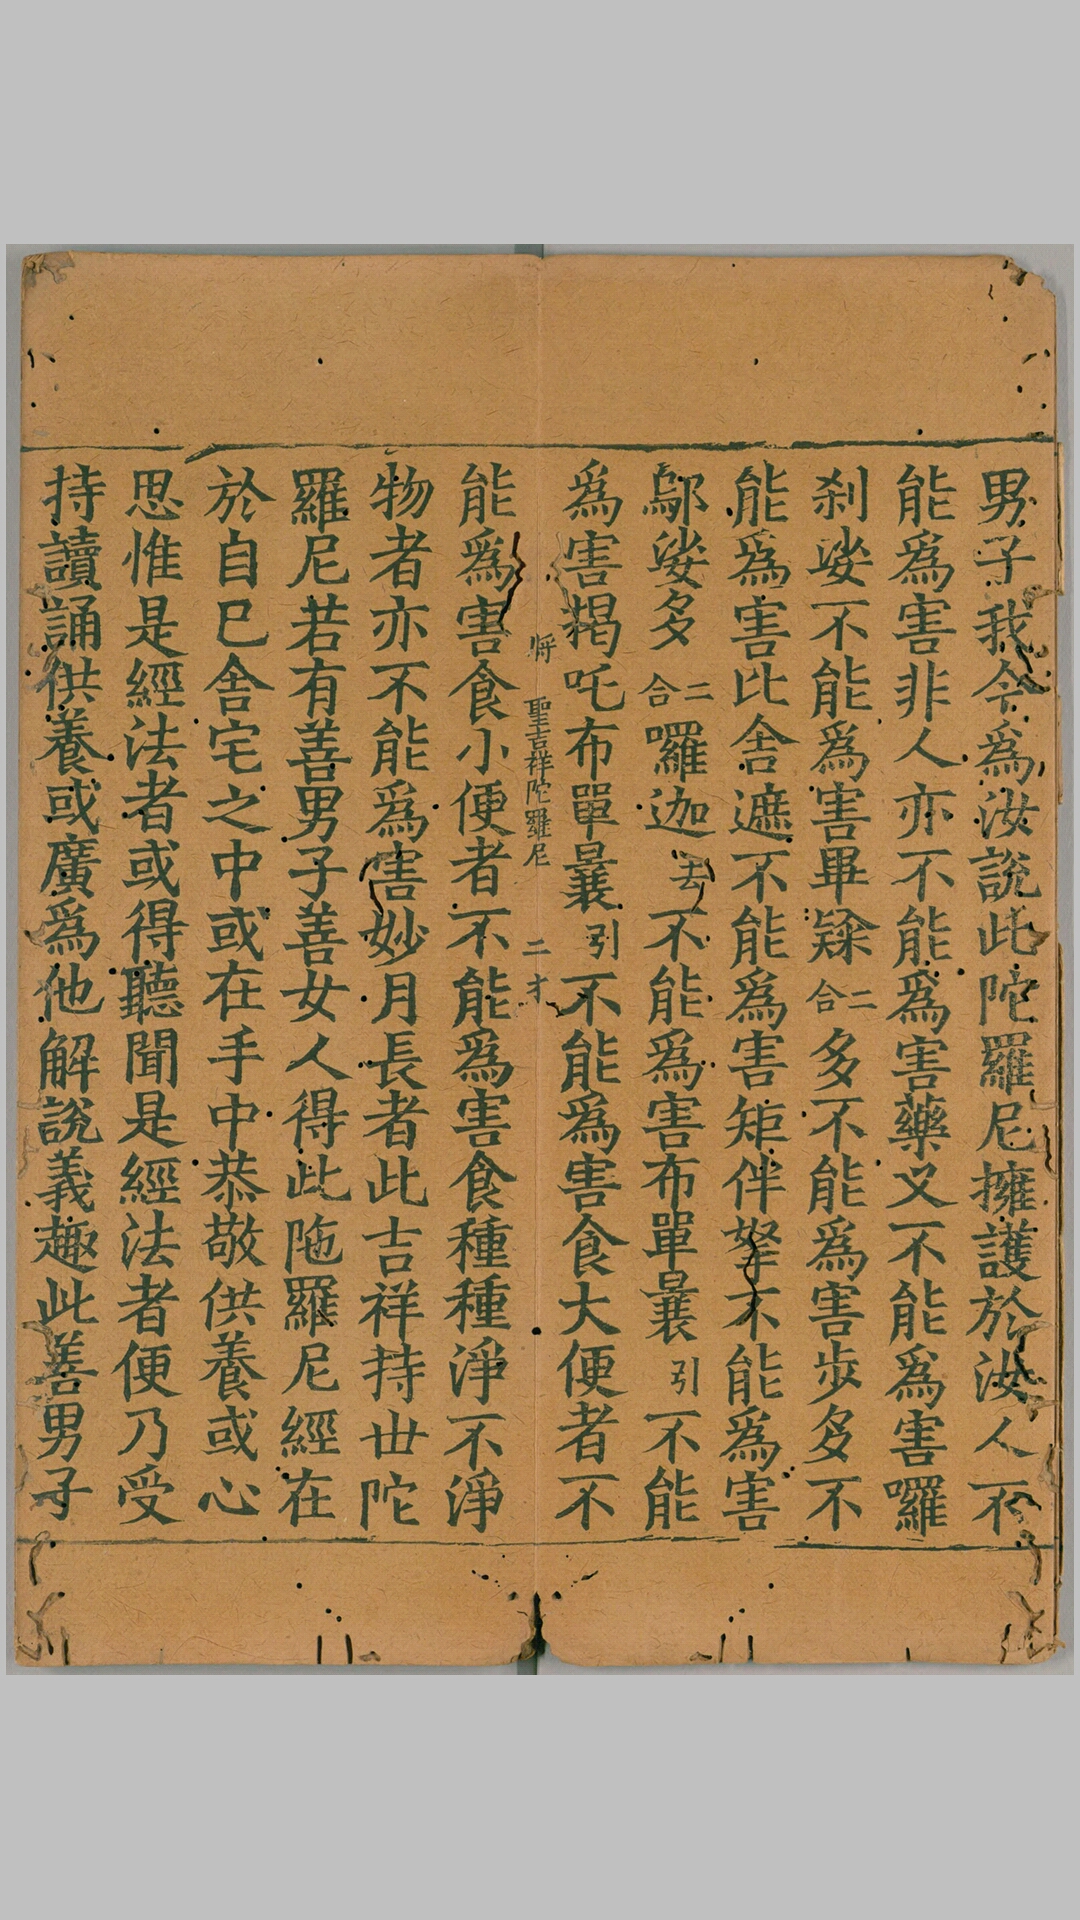 男子我今為汝說此陀羅尼擁護於汝人不
能為害非人亦不能為害藥叉不能為害囉
剎娑不能為害畢𨽻二合多不能為害步多不
能為害比舍遮不能為害矩伴拏不能為害
鄔娑多二合囉迦去不能為害布單曩引不能
為害羯吒布單曩引不能為害食大便者不
將 聖吉祥陀羅尼 二 才
能為害食小便者不能為害食種種淨不淨
物者亦不能為害妙月長者此吉祥持世陀
羅尼若有善男子善女人得此陁羅尼經在
於自巳舍宅之中或在手中恭敬供養或心
思惟是經法者或得聽聞是經法者便乃受
持讀誦供養或廣為他解說義趣此善男子